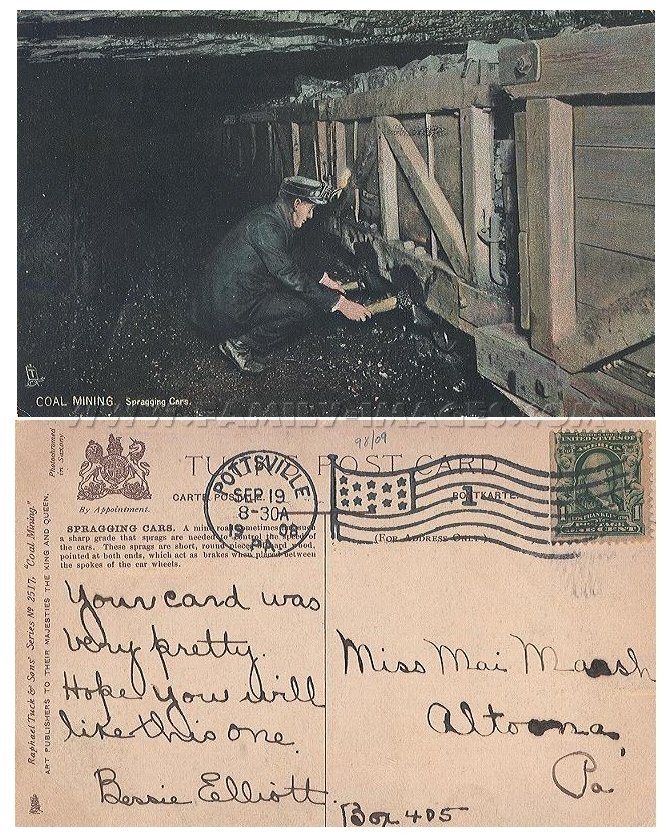 COAL MINING. Spragging Cars.
WWW.FAMILY-IMAGES.COM
98/09
TUCK'S POST CARD
CARTE POSTALE
POSTKARTE
(FOR ADDRESS ONLY)
By Appointment.
Photochromed
in Saxony.
Raphael Tuck & Sons' Series No 2517, "Coal Mining."
ART PUBLISHERS TO THEIR MAJESTIES THE KING AND QUEEN.
POTTSVILLE
SEP 19
8-30A
PA.
1
UNITED STATES OF
SPRAGGING CARS. A mine road sometimes has such
a sharp grade that sprags are needed to control the speed of
the cars. These sprags are short, round pieces of hard wood,
pointed at both ends, which act as brakes when placed between
the spokes of the car wheels.
Your card was
very pretty.
Hope you will
like this one.
Bessie Elliott
Miss Mai Marsh
Altoona,
Pa
Box 405